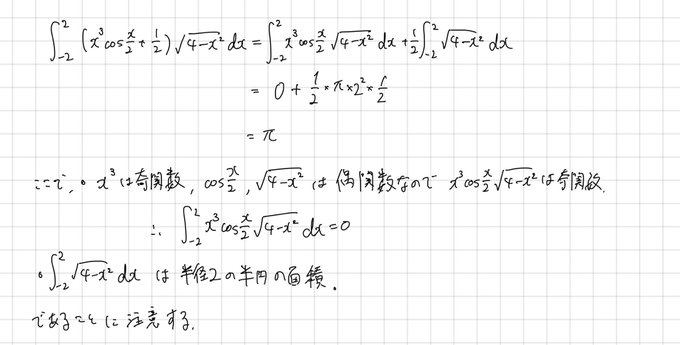 ∫_{-2}^{2} (x³cos x/2 + 1/2) √(4-x²) dx = ∫_{-2}^{2} x³cos x/2 √(4-x²) dx + 1/2 ∫_{-2}^{2} √(4-x²) dx
= 0 + 1/2 × π × 2² × 1/2
= π
ここで, ∘ x³は奇関数, cos x/2, √(4-x²) は 偶関数なので x³cos x/2 √(4-x²) は奇関数.
∴ ∫_{-2}^{2} x³cos x/2 √(4-x²) dx = 0
∘ ∫_{-2}^{2} √(4-x²) dx は 半径2の半円の面積.
であることに注意する.